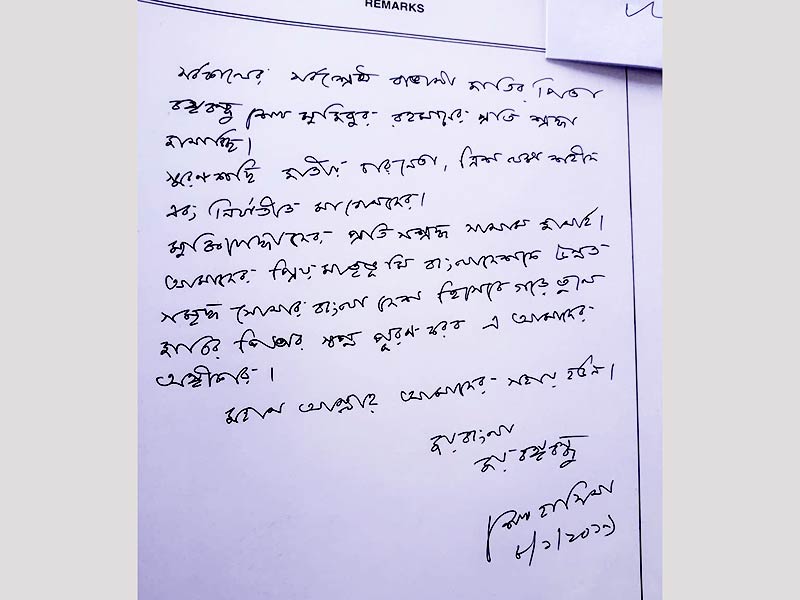 REMARKS
সর্বকালের সর্বশ্রেষ্ঠ বাঙালী জাতির পিতা
বঙ্গবন্ধু শেখ মুজিবুর রহমানের প্রতি শ্রদ্ধা
জানাচ্ছি।
স্মরণ করছি জাতীয় চারনেতা, ত্রিশ লক্ষ শহীদ
এবং নির্যাতীত মা বোনদের।
মুক্তিযোদ্ধাদের প্রতি সশ্রদ্ধ সালাম জানাই।
আমাদের প্রিয় মাতৃভূমি বাংলাদেশকে উন্নত
সমৃদ্ধ সোনার বাংলা দেশ হিসেবে গড়ে তুলে
জাতির পিতার স্বপ্ন পূরণ করব এ আমাদের
অঙ্গীকার।
মহান আল্লাহ আমাদের সহায় হউন।
জয় বাংলা
জয় বঙ্গবন্ধু
শেখ হাসিনা
৮/১/২০১৯